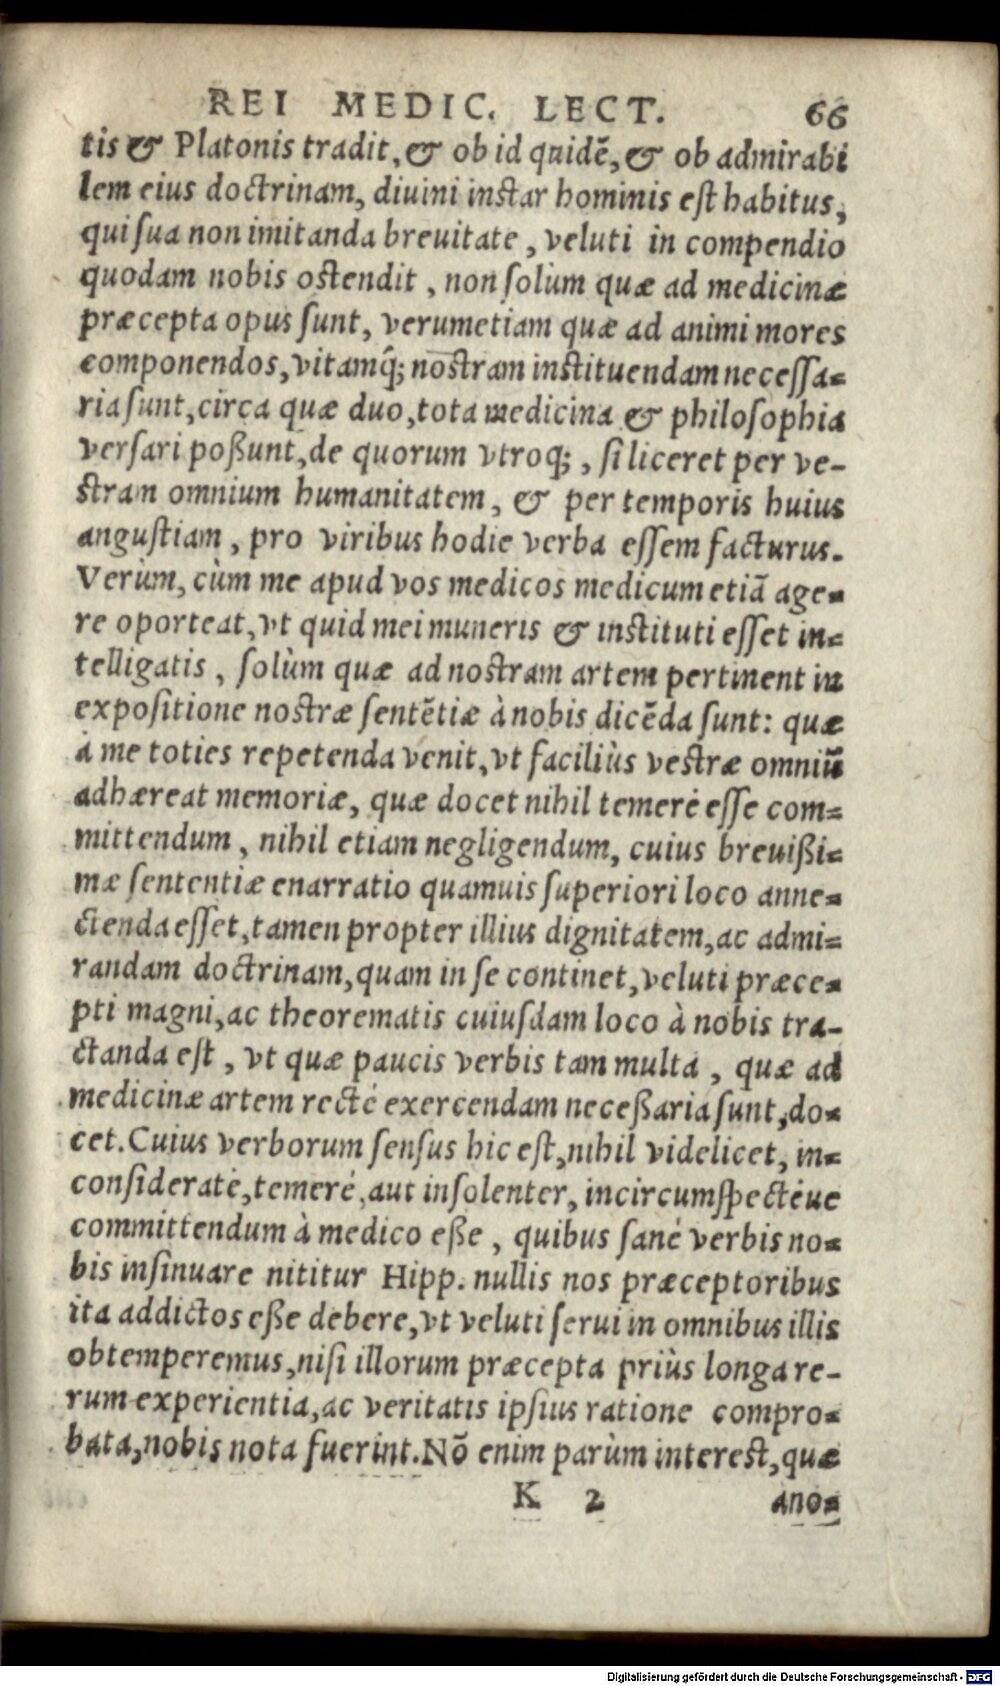 REI MEDIC. LECT. 66
tis & Platonis tradit, & ob id quidẽ, & ob admirabi
lem eius doctrinam, diuini instar hominis est habitus,
qui sua non imitanda breuitate, veluti in compendio
quodam nobis ostendit, non solùm quæ ad medicinæ
præcepta opus sunt, verumetiam quæ ad animi mores
componendos, vitamq́; nostram instituendam necessa=
ria sunt, circa quæ duo, tota medicina & philosophia
versari poßunt, de quorum vtroq;, si liceret per ve-
stram omnium humanitatem, & per temporis huius
angustiam, pro viribus hodie verba essem facturus.
Verùm, cùm me apud vos medicos medicum etiã age=
re oporteat, vt quid mei muneris & instituti esset in=
telligatis, solùm quæ ad nostram artem pertinent in
expositione nostræ sentẽtiæ à nobis dicẽda sunt: quæ
à me toties repetenda venit, vt faciliùs vestræ omniũ
adhæreat memoriæ, quæ docet nihil temerè esse com=
mittendum, nihil etiam negligendum, cuius breuißi=
mæ sententiæ enarratio quamuis superiori loco anne=
ctenda esset, tamen propter illius dignitatem, ac admi=
randam doctrinam, quam in se continet, veluti præce=
pti magni, ac theorematis cuiusdam loco à nobis tra-
ctanda est, vt quæ paucis verbis tam multa, quæ ad
medicinæ artem rectè exercendam neceßaria sunt, do=
cet. Cuius verborum sensus hic est, nihil videlicet, in=
consideratè, temerè, aut insolenter, incircumspectéue
committendum à medico eße, quibus sanè verbis no=
bis insinuare nititur Hipp. nullis nos præceptoribus
ita addictos eße debere, vt veluti serui in omnibus illis
obtemperemus, nisi illorum præcepta priùs longa re-
rum experientia, ac veritatis ipsius ratione compro=
bata, nobis nota fuerint. Nõ enim parùm interest, quæ
K 2 ano=
Digitalisierung gefördert durch die Deutsche Forschungsgemeinschaft - DFG